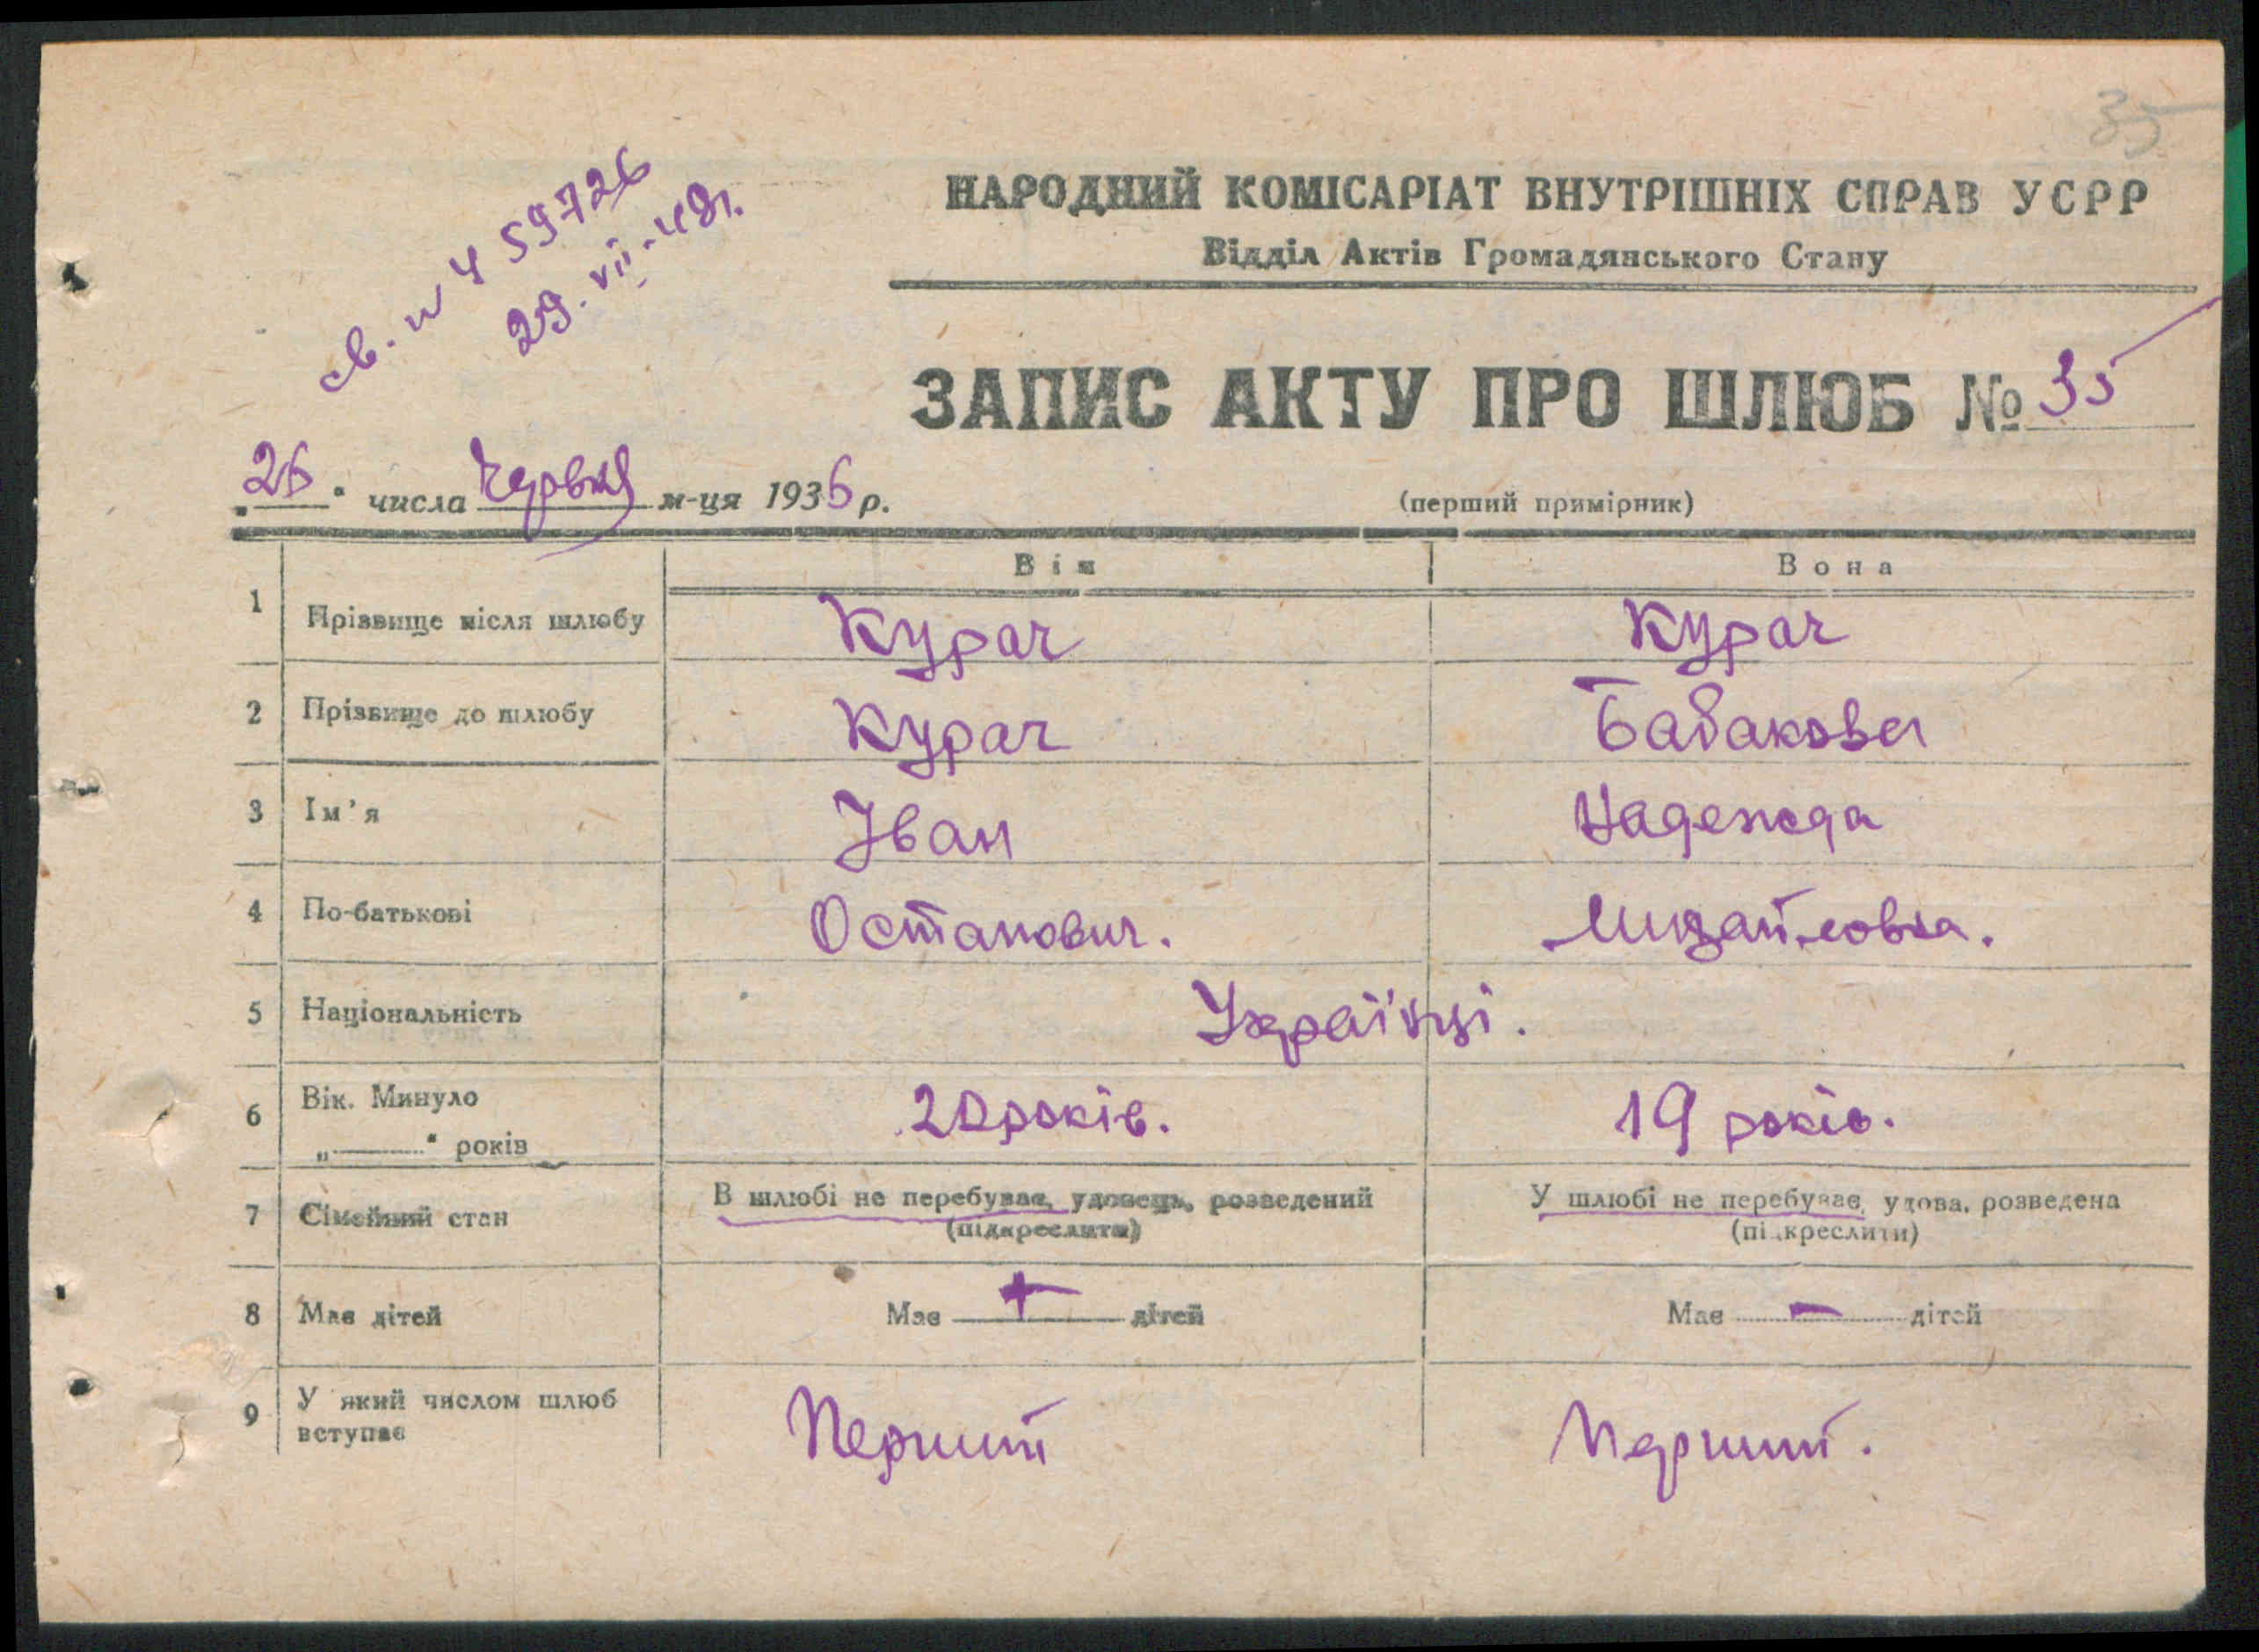 35
св. и Ч 59726
29. VII. 49г.
НАРОДНИЙ КОМІСАРІАТ ВНУТРІШНІХ СПРАВ УСРР
Відділ Актів Громадянського Стану
ЗАПИС АКТУ ПРО ШЛЮБ № 35
„26“ числа Червня м-ця 1936 р.
(перший примірник)
Він Вона
1 Прізвище після шлюбу Курач Курач
2 Прізвище до шлюбу Курач Бабакова
3 Ім'я Іван Надежда
4 По-батькові Остапович. Михайловна.
5 Національність Українці.
6 Вік. Минуло „———“ років 20 років. 19 років.
7 Сімейний стан В шлюбі не перебуває, удовець, розведений У шлюбі не перебуває, удова, розведена
(підкреслити) (підкреслити)
8 Має дітей Має + дітей Має — дітей
9 У який числом шлюб вступає Перший Перший.